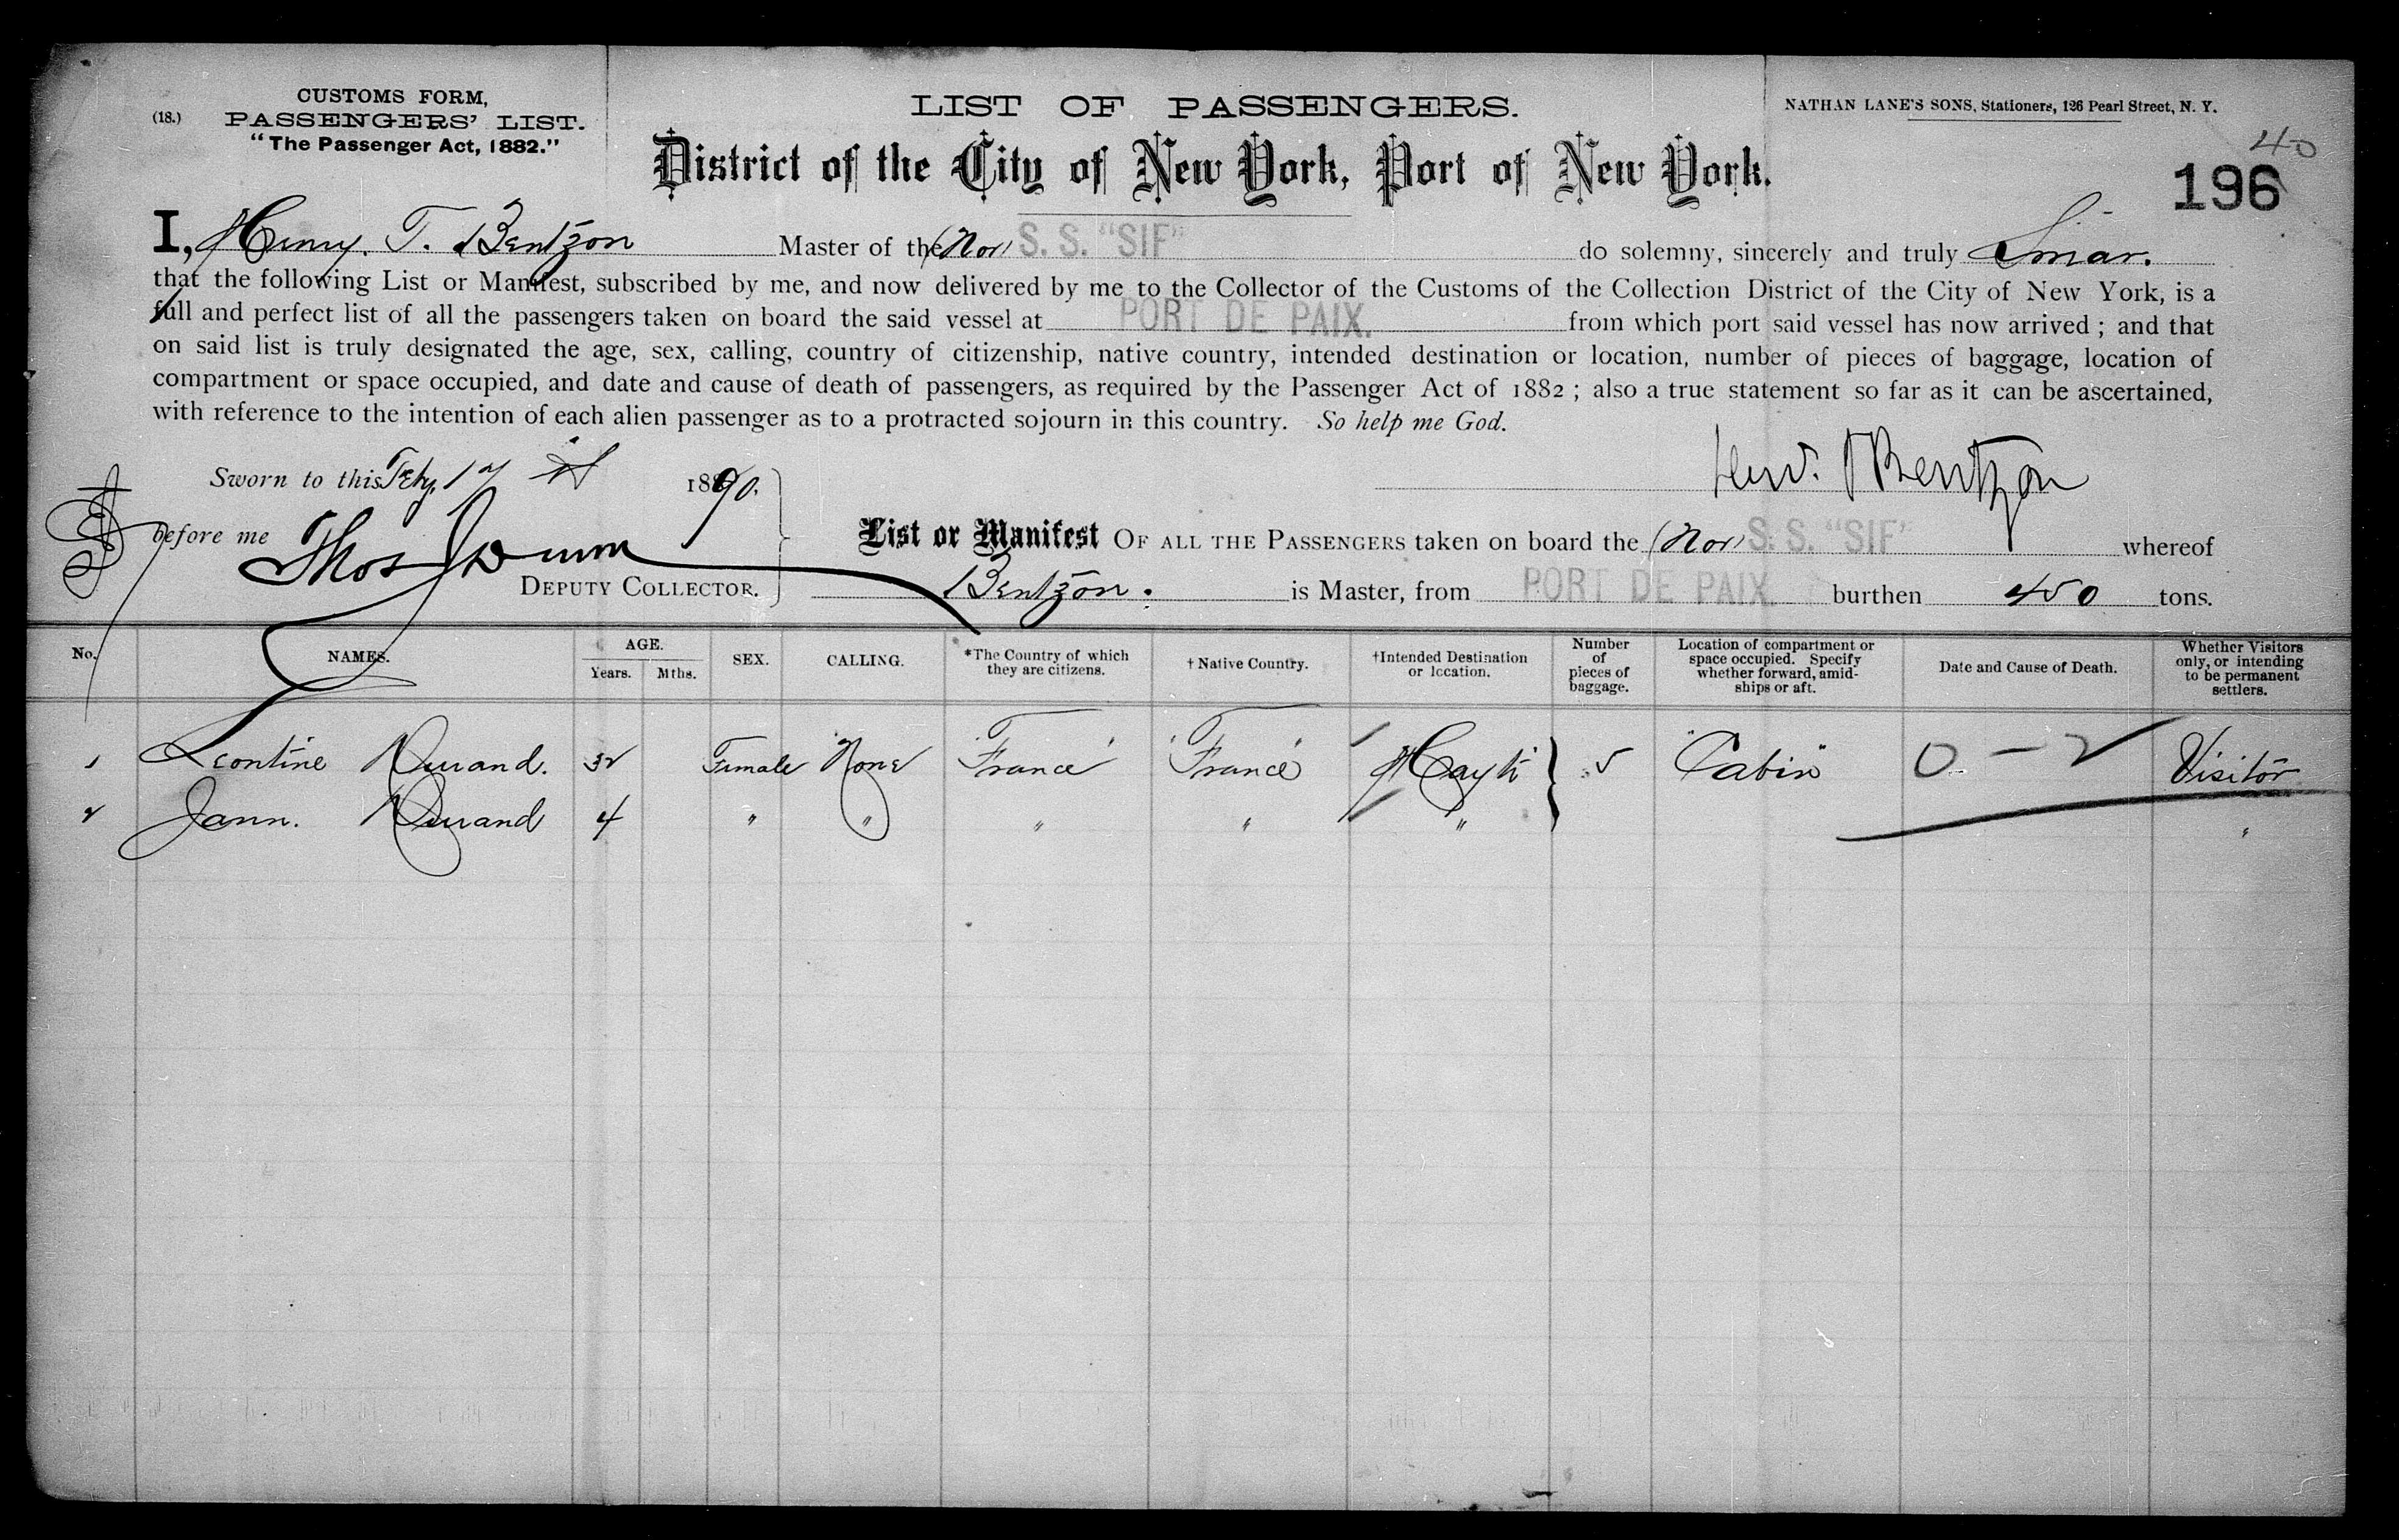 CUSTOMS FORM,
(18.) PASSENGERS' LIST.
"The Passenger Act, 1882."
LIST OF PASSENGERS.
NATHAN LANE'S SONS, Stationers, 126 Pearl Street, N. Y.
District of the City of New York, Port of New York.
40
196
I, Henry. T. Bentzon Master of the (Nor) S. S. "SIF" do solemny, sincerely and truly Swear.
that the following List or Manifest, subscribed by me, and now delivered by me to the Collector of the Customs of the Collection District of the City of New York, is a
full and perfect list of all the passengers taken on board the said vessel at PORT DE PAIX. from which port said vessel has now arrived ; and that
on said list is truly designated the age, sex, calling, country of citizenship, native country, intended destination or location, number of pieces of baggage, location of
compartment or space occupied, and date and cause of death of passengers, as required by the Passenger Act of 1882 ; also a true statement so far as it can be ascertained,
with reference to the intention of each alien passenger as to a protracted sojourn in this country. So help me God.
Sworn to this Feby. 17 1890.
Bentzon
before me Thos Dunn
DEPUTY COLLECTOR.
List or Manifest OF ALL THE PASSENGERS taken on board the (Nor) S. S. "SIF" whereof
Bentzon. is Master, from PORT DE PAIX burthen 450 tons.
No. NAMES. AGE. Years. Mths. SEX. CALLING. *The Country of which they are citizens. † Native Country. †Intended Destination or location. Number of pieces of baggage. Location of compartment or space occupied. Specify whether forward, amidships or aft. Date and Cause of Death. Whether Visitors only, or intending to be permanent settlers.
1 Leontine Durand. 32 Female None "France" "France" Hayti } 5 "Cabin" 0 - 2 Visitor
2 Jann. Durand 4 " " " " " "